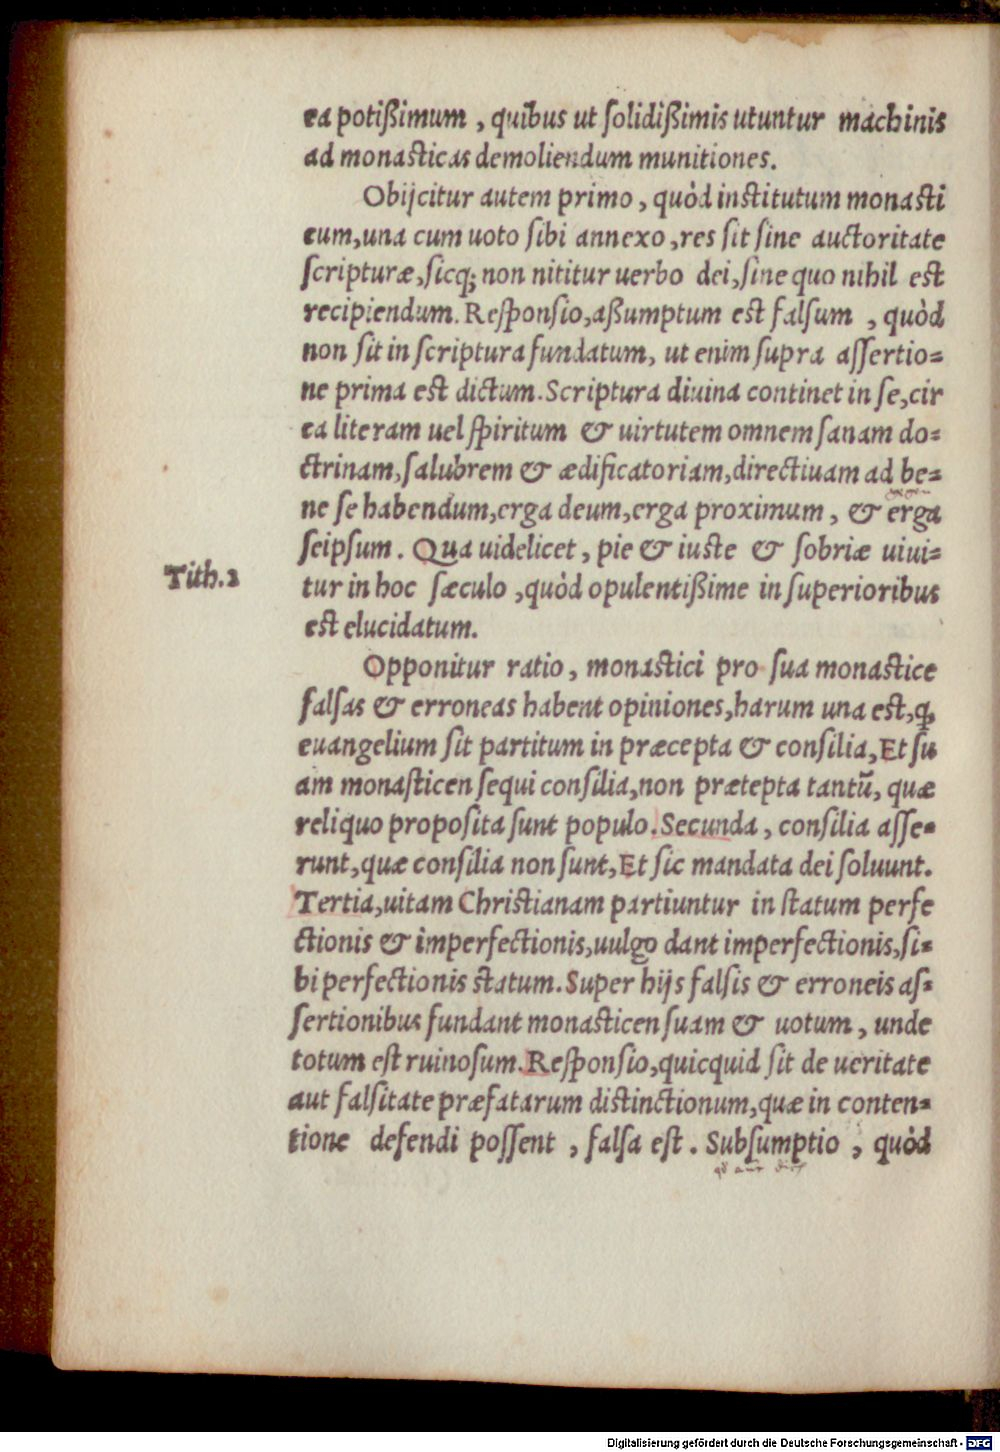 ea potißimum , quibus ut solidißimis utuntur machinis
ad monasticas demoliendum munitiones.
Obijcitur autem primo , quòd institutum monasti
cum, una cum uoto sibi annexo , res sit sine auctoritate
scripturæ, sicq; non nititur uerbo dei, sine quo nihil est
recipiendum. Responsio, aßumptum est falsum , quòd
non sit in scriptura fundatum, ut enim supra assertio=
ne prima est dictum. Scriptura diuina continet in se, cir
ca literam uel spiritum & uirtutem omnem sanam do=
ctrinam, salubrem & ædificatoriam, directiuam ad be=
ne se habendum, erga deum, erga proximum , & erga
seipsum . Qua uidelicet , pie & iuste & sobriæ uiui=
Tith.2
tur in hoc sæculo , quòd opulentißime in superioribus
est elucidatum.
Opponitur ratio , monastici pro sua monastice
falsas & erroneas habent opiniones, harum una est, ꝙ
euangelium sit partitum in præcepta & consilia, Et su
am monasticen sequi consilia, non prætepta tantũ, quæ
reliquo proposita sunt populo. Secunda , consilia asse=
runt, quæ consilia non sunt, Et sic mandata dei soluunt.
Tertia, uitam Christianam partiuntur in statum perfe
ctionis & imperfectionis, uulgo dant imperfectionis, si=
bi perfectionis statum. Super hijs falsis & erroneis as=
sertionibus fundant monasticen suam & uotum , unde
totum est ruinosum. Responsio, quicquid sit de ueritate
aut falsitate præfatarum distinctionum, quæ in conten=
tione defendi possent , falsa est . Subsumptio , quòd
Digitalisierung gefördert durch die Deutsche Forschungsgemeinschaft - DFG